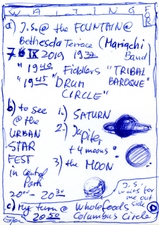 WATINGER
a) J.S. @ the FOUNTAIN @
Bethesda Terrace (Mariachi
7 IX 2019 19:30 Band
" 19:40 Fiddlers "TRIBAL
" 19:45 "DRUM BAROQUE"
CIRCLE"
b) to see
@ the
URBAN
STAR
FEST
in Central
Park
20:00 - 20:30
1. SATURN
2. Jupiter
+ 4 moons
3) the MOON
J.S.
waits for
me out
side
c) my turn @ Wholefoods
20:50 Columbus Circle